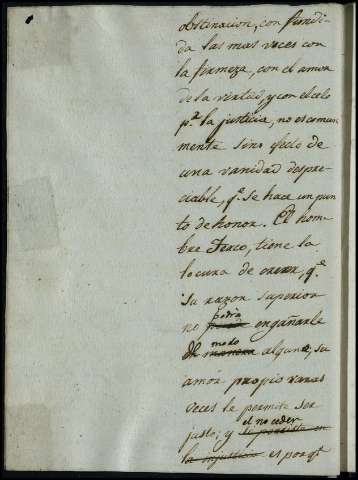 obstinacion, con fundi-
da las mas veces con
la firmeza, con el amor
de la virtud, y con el celo
pr. la justicia, no es comun-
mente sino efecto de
una vanidad despre-
ciable, qe. se hace un pun
to de honor. El hom-
bre Terco, tiene la
locura de creer, qe.
su razon superior
podrá
no engañarle
modo
de manera alguno; su
amor propio raras
veces le permite ser
el no ceder
justo; y si persiste en
la injusticia es porqe